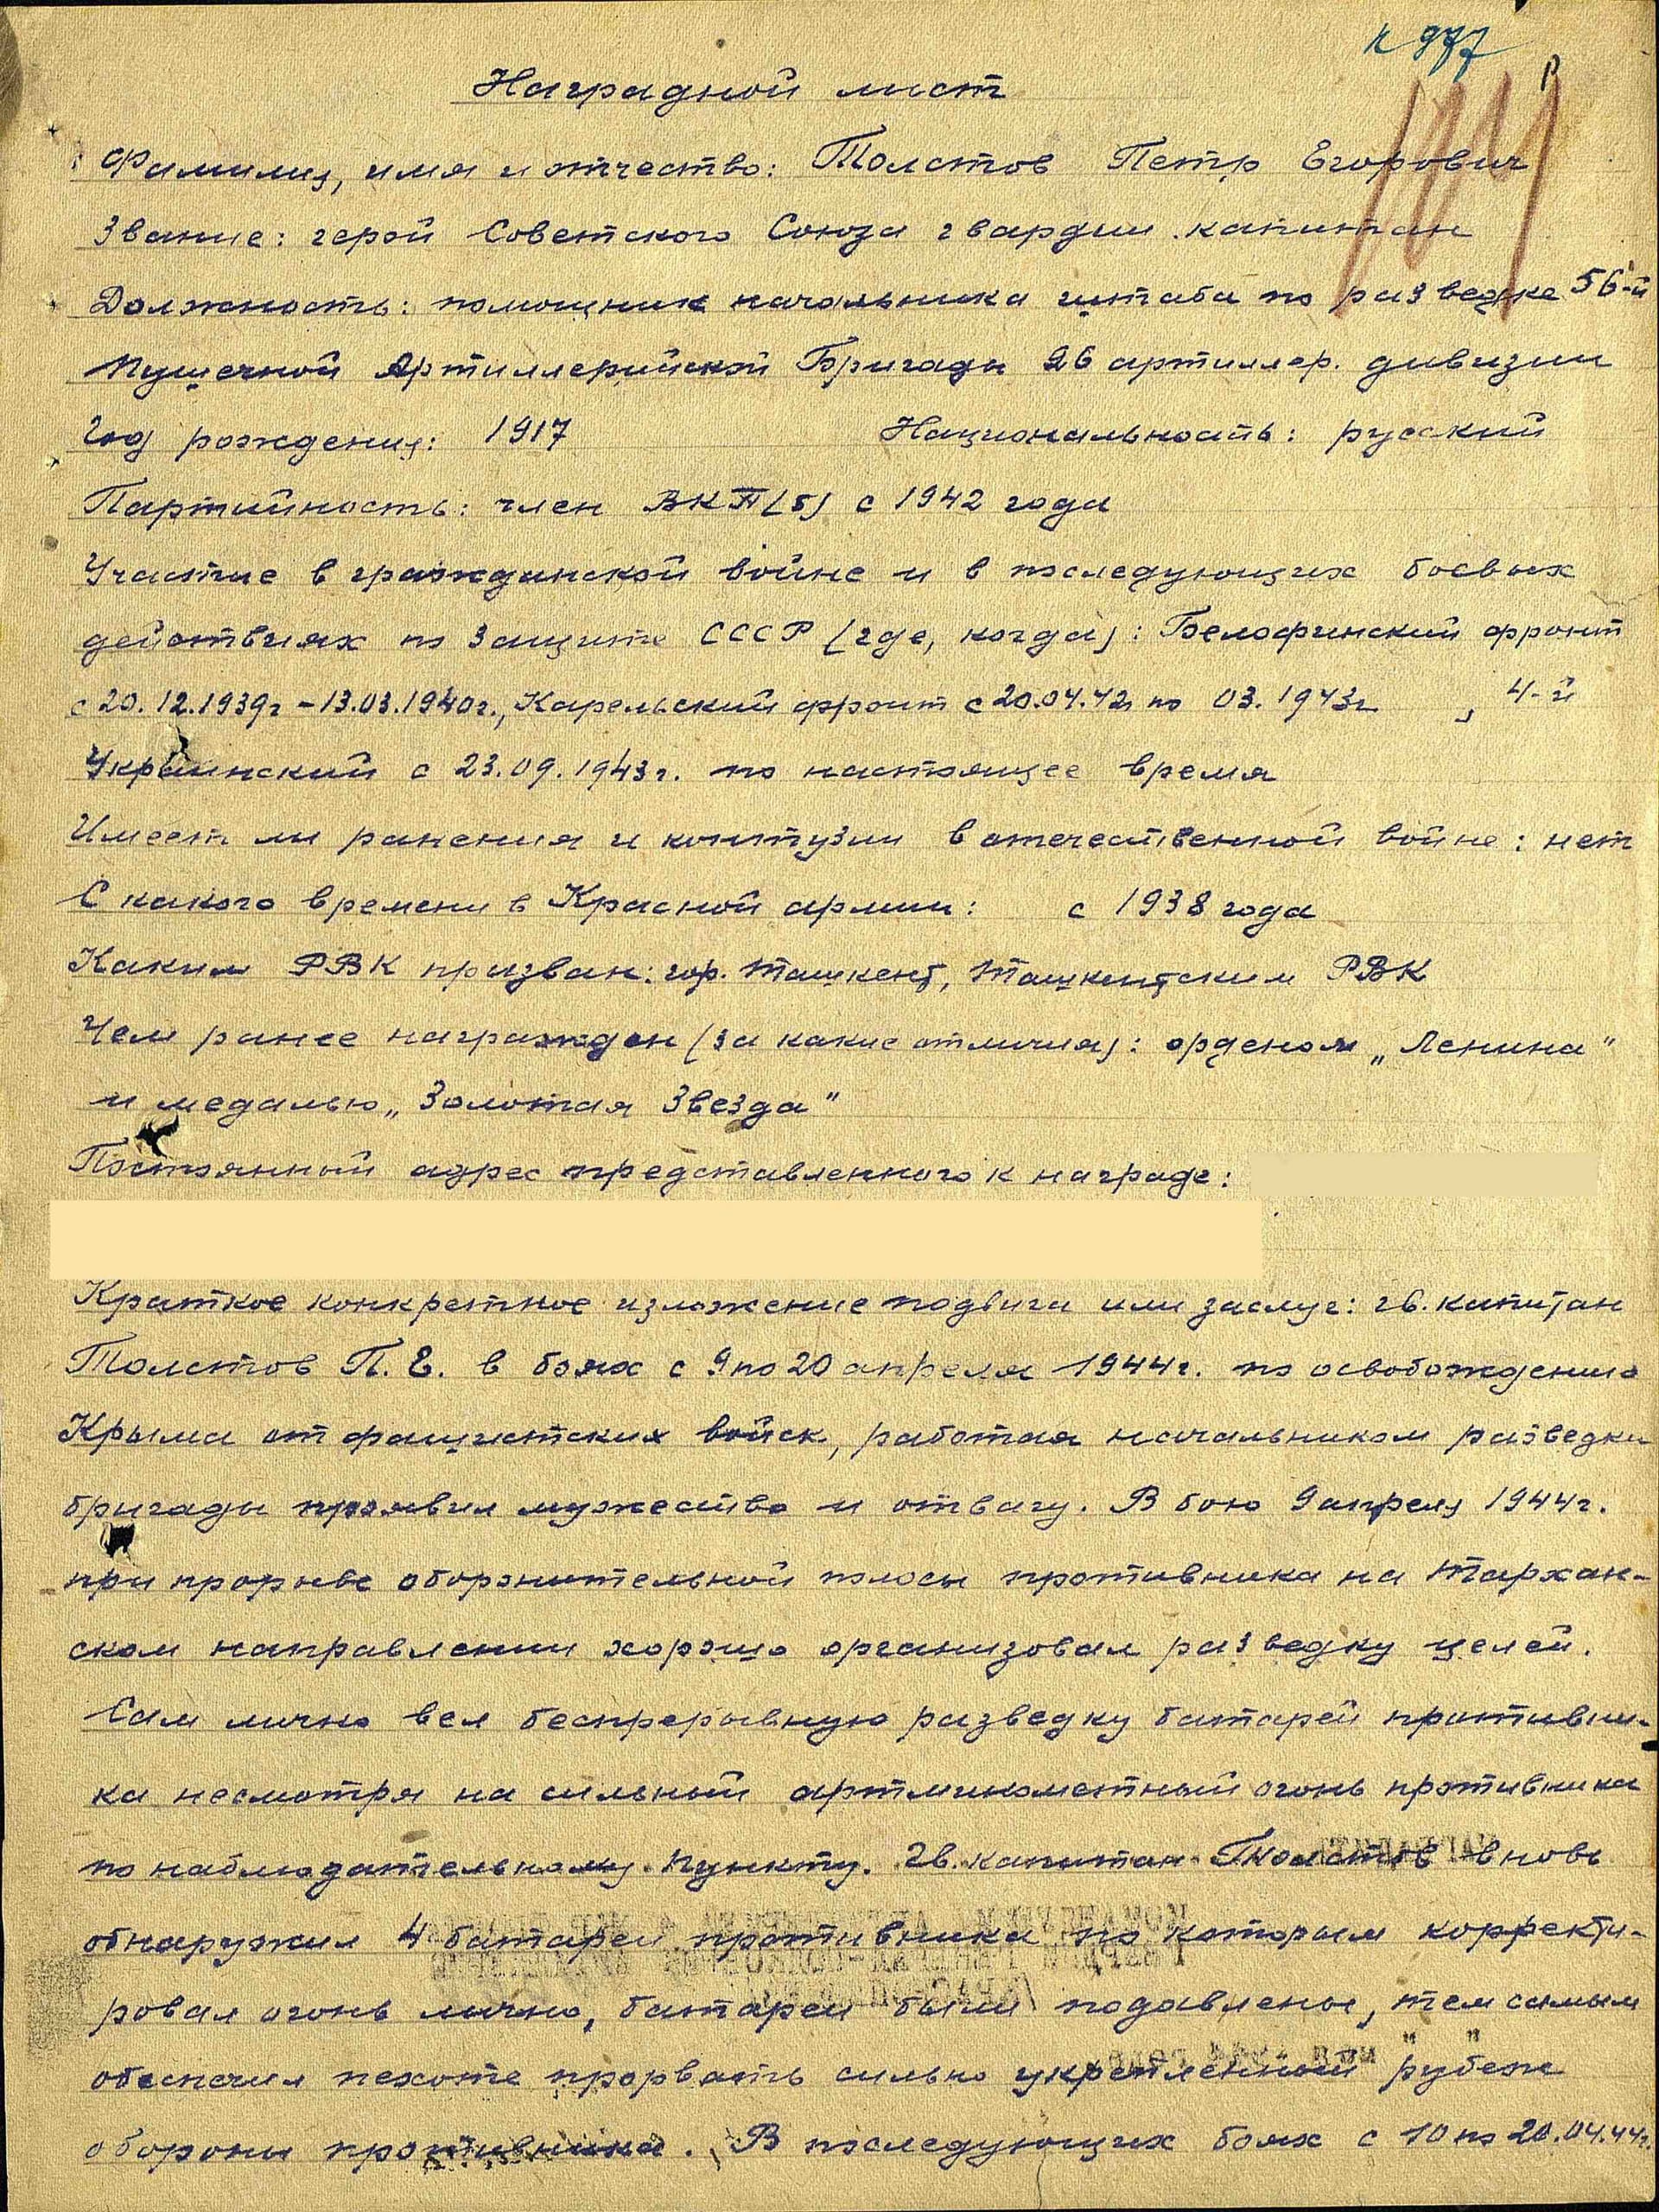 к 977
Наградной лист
Фамилия, имя и отчество: Толстов Петр Егорович
Звание: герой Советского Союза гвардии капитан
Должность: помощник начальника штаба по разведке 56-й
Пушечной Артиллерийской Бригады 26 артиллер. дивизии
Год рождения: 1917 Национальность: русский
Партийность: член ВКП(б) с 1942 года
Участие в гражданской войне и в последующих боевых
действиях по защите СССР (где, когда): Белофинский фронт
с 20.12.1939г – 13.03.1940г., Карельский фронт с 20.04.42г по 03.1943г , 4-й
Украинский с 23.09.1943г. по настоящее время
Имеет ли ранения и контузии в отечественной войне: нет
С какого времени в Красной армии: с 1938 года
Каким РВК призван: гор. Ташкент, Ташкентским РВК
Чем ранее награжден (за какие отличия): орденом „Ленина"
и медалью „Золотая Звезда"
Постоянный адрес представленного к награде:
Краткое конкретное изложение подвига или заслуг: гв. капитан
Толстов П. Е. в боях с 9 по 20 апреля 1944г. по освобождению
Крыма от фашистских войск, работая начальником разведки
бригады проявил мужество и отвагу. В бою 9 апреля 1944г.
при прорыве оборонительной полосы противника на Тархан-
ском направлении хорошо организовал разведку целей.
Сам лично вел беспрерывную разведку батарей противни-
ка несмотря на сильный артминометный огонь противника
по наблюдательному пункту. Гв. капитан Толстов вновь
обнаружил 4 батареи противника по которым корректи-
ровал огонь лично, батареи были подавлены, тем самым
обеспечил пехоте прорвать сильно укрепленный рубеж
обороны противника. В последующих боях с 10 по 20.04.44г.